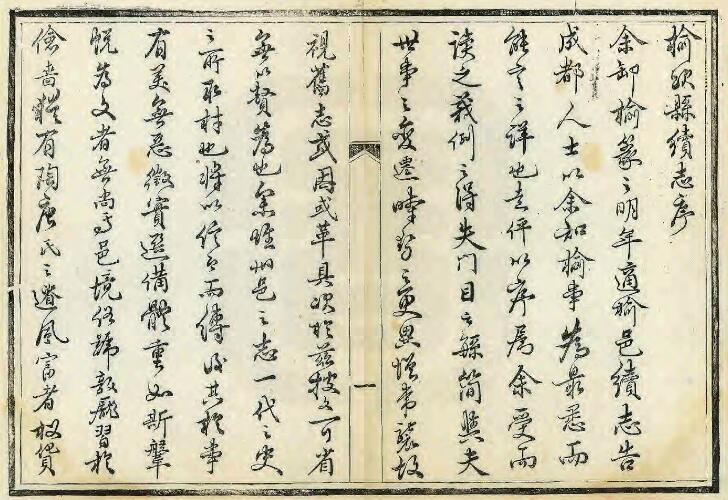 榆次縣續志序
余卸榆篆之明年適榆邑續志告
成都人士以余知榆事為最悉而
能言之詳也走伻以序屬余受而
讀之義例之得失門目之緐簡與夫
世事之變遷時勢之更異慎常襲故
視舊志或因或革具次於茲披文可省
無以贅為也余惟州邑之志一代之史
之所取材也將以信今而傳後其於事
有美無惡徵實選備體重如斯輩
為文者無尚焉邑境俗號敦龐習於
儉嗇猶有陶唐氏之遺風富者權貨
一